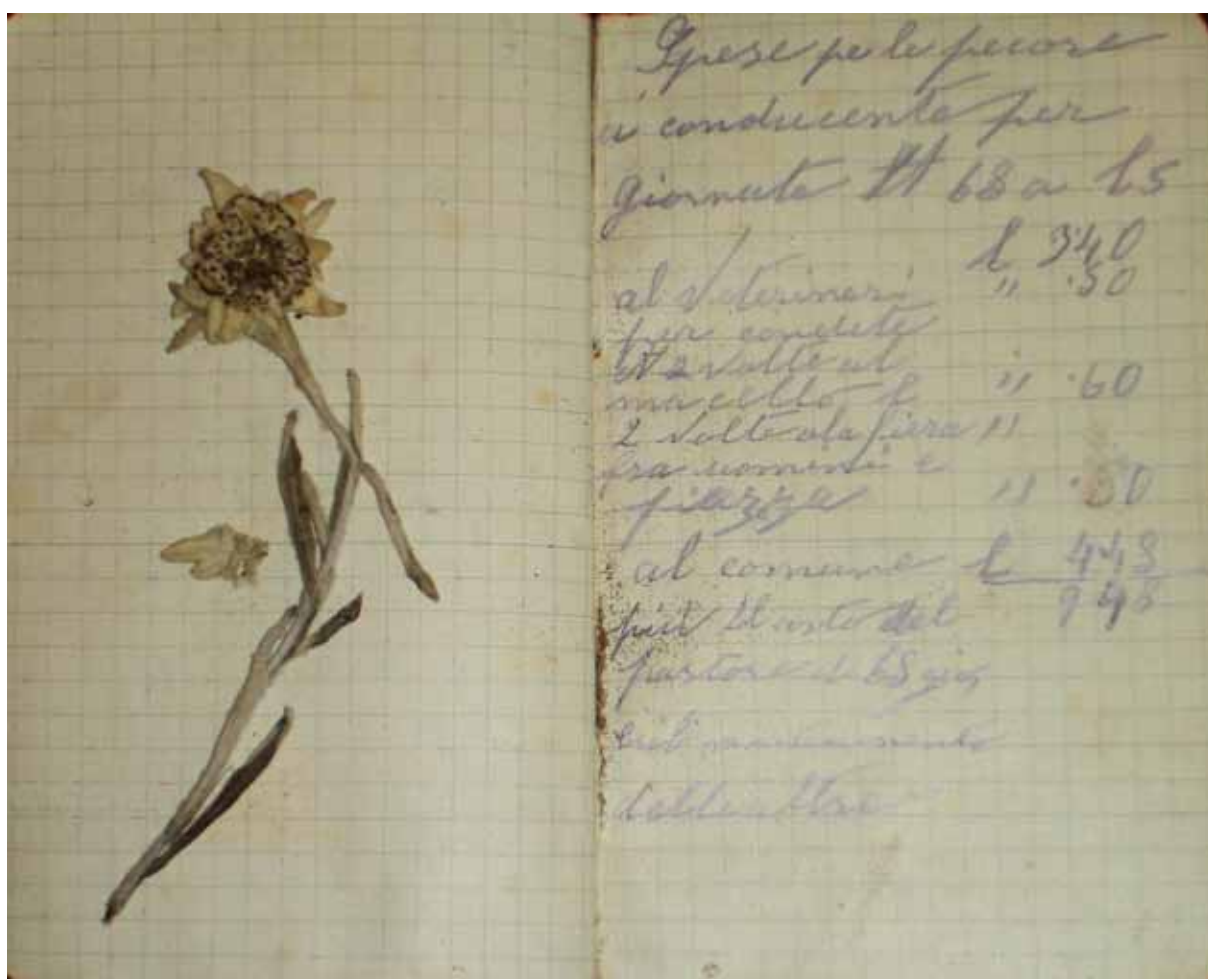 Spese pe le pecore
a conducente per
giornate N 68 a L 5
L 340
al veterinari " .50
per condote
N 2 volte al
macello L " .60
2 volte ala fiera "
fra uomini e
piazza " .50
al comune L 448
948
più il costo del
pastore di 68 gior
e il mantenimento